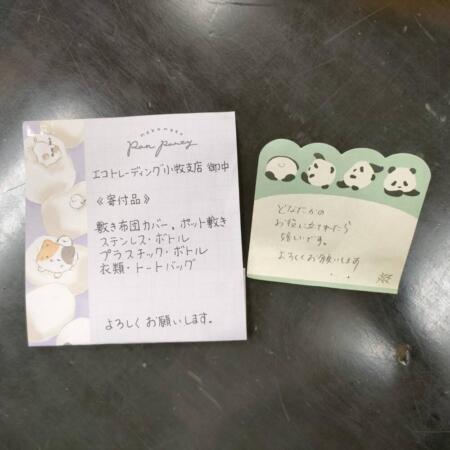 mochimochi
Pan Pantsy
エコトレーディング小牧支店 御中
《寄付品》
敷き布団カバー。ポット敷き
ステンレス・ボトル
プラスチック・ボトル
衣類・トートバッグ
よろしくお願いします。
どなたかの
お役に立てれたら
幸いです。
よろしくお願いします